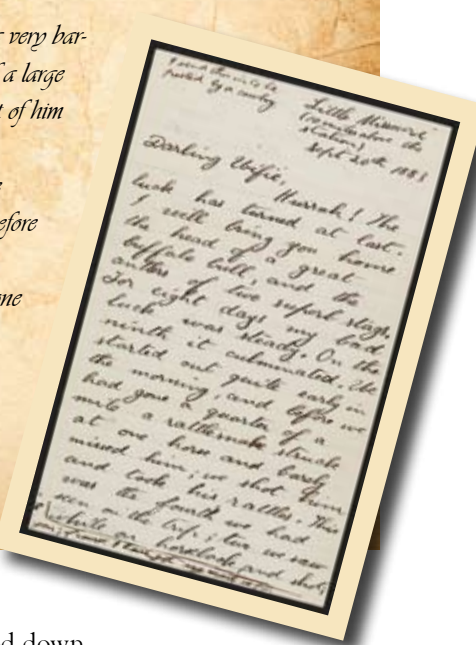 very bar-
a large
t of him
efore
ne
I send this in to be
posted by a cowboy
Little Missouri
station)
Sept 20th 1883
Darling Wifie,
Hurrah! The
luck has turned at last.
I will bring you home
the head of a great
buffalo bull, and the
antlers of two superb stags.
For eight days my bad
luck was steady. On the
ninth it culminated. We
started out quite early in
the morning, and before we
had gone a quarter of a
mile a rattlesnake struck
at one horse and barely
missed him; we shot him
and took his rattles. This
was the fourth we had
seen on the trip; two we saw
while on horseback and shot;
d down